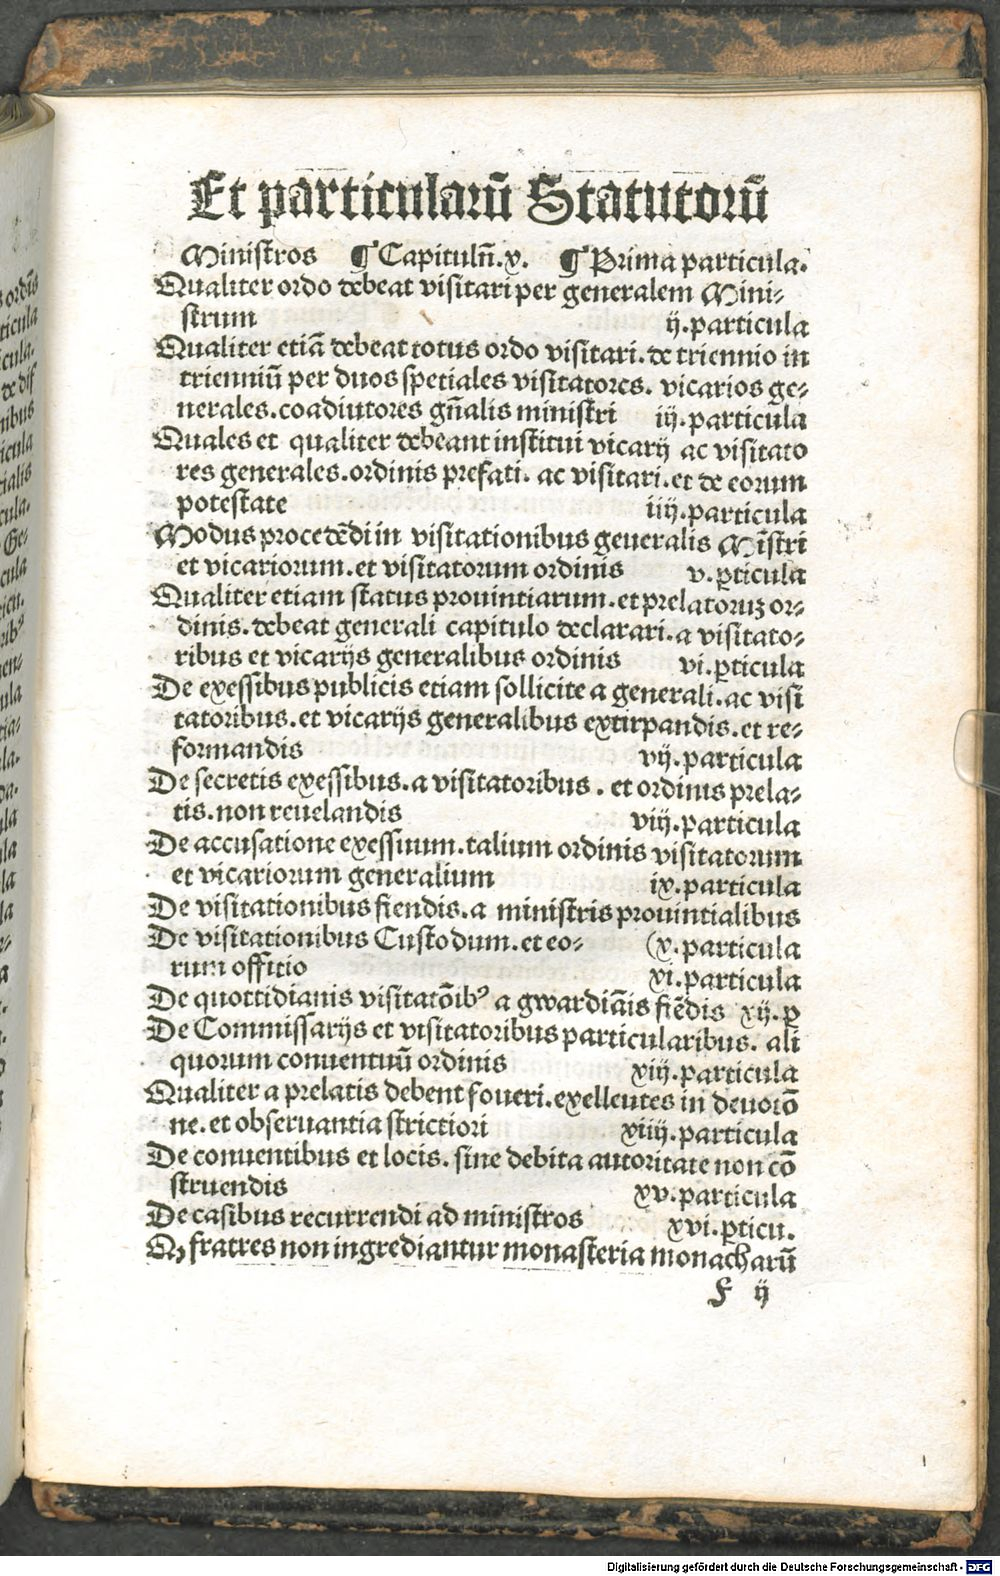 Et particularū Statutorū
Ministros ¶ Capitulū.x. ¶ Prima particula.
Qualiter ordo debeat visitari per generalem Mini⸗
strum ij.particula
Qualiter etiā debeat totus ordo visitari.de triennio in
trienniū per duos spetiales visitatores. vicarios ge⸗
nerales.coadiutores gn̄alis ministri iij.particula
Quales et qualiter debeant institui vicarij ac visitato
res generales.ordinis prefati. ac visitari.et de eorum
potestate iiij.particula
Modus procedēdi in visitationibus generalis Mīstri
et vicariorum.et visitatorum ordinis v.ꝑticula
Qualiter etiam status prouintiarum.et prelatoruꝫ or⸗
dinis.debeat generali capitulo declarari.a visitato⸗
ribus et vicarijs generalibus ordinis vi.ꝑticula
De exessibus publicis etiam sollicite a generali.ac visi
tatoribus.et vicarijs generalibus extirpandis.et re⸗
formandis vij.particula
De secretis exessibus.a visitatoribus . et ordinis prela⸗
tis.non reuelandis viij.particula
De accusatione exessuum.talium ordinis visitatorum
et vicariorum generalium ix.particula
De visitationibus fiendis.a ministris prouintialibus
De visitationibus Custodum.et eo⸗ (x.particula
rum offitio xi.particula
De quottidianis visitatōibꝰ a gwardiāis fiēdis xij.ꝑ
De Commissarijs et visitatoribus particularibus. ali
quorum conuentuū ordinis xiij.particula
Qualiter a prelatis debent foueri.exellentes in deuotō
ne.et obseruantia strictiori xiiij.particula
De conuentibus et locis. sine debita autoritate non cō
struendis xv.particula
De casibus recurrendi ad ministros xvi.ꝑticu.
Qꝫ fratres non ingrediantur monasteria monacharū
F ij
Digitalisierung gefördert durch die Deutsche Forschungsgemeinschaft - DFG